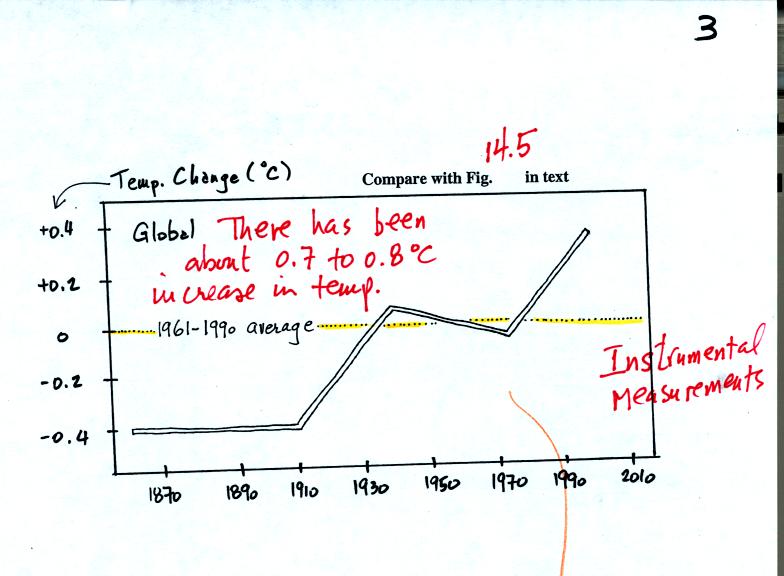 3
14.5
Temp. Change (°C)
Compare with Fig. in text
+0.4
Global There has been
about 0.7 to 0.8°C
+0.2
increase in temp.
0
1961-1990 average
Instrumental
Measurements
-0.2
-0.4
1870 1890 1910 1930 1950 1970 1990 2010